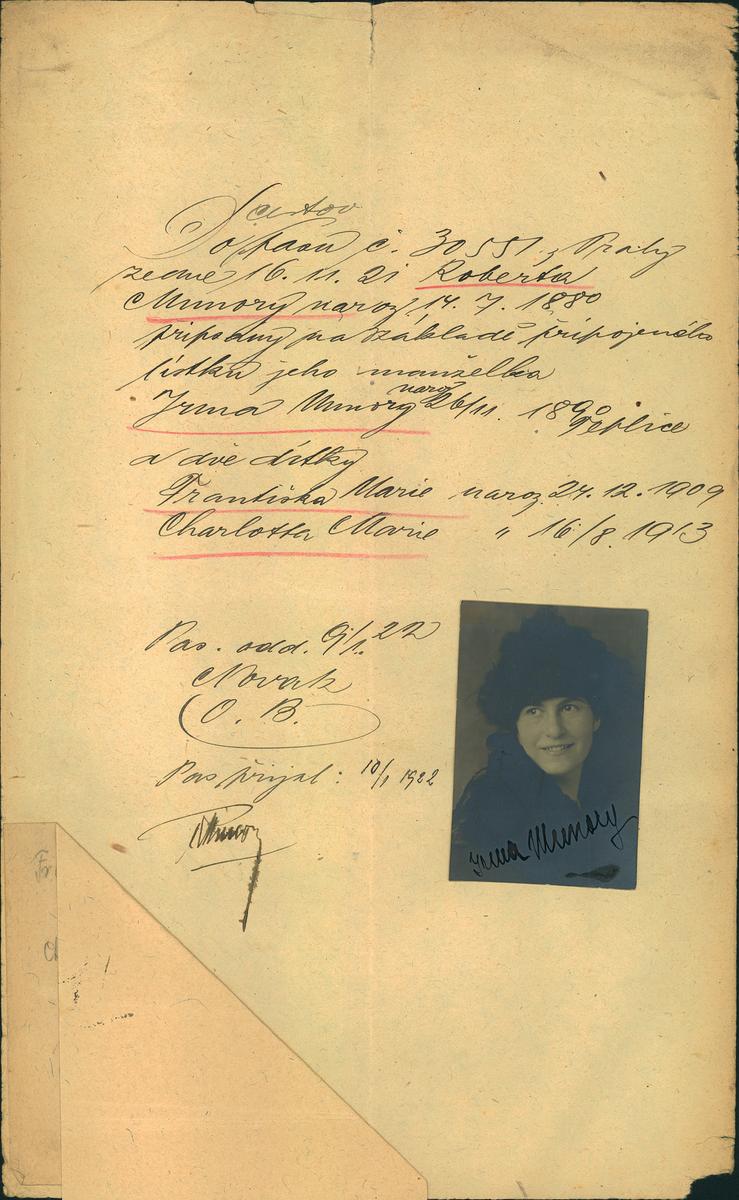 Do pasu č. 30551 z Prahy
ze dne 16. 11. 21 Roberta
Munory naroz. 14. 7. 1880
připsány na základě připojeného
lístku jeho manželka
Irma Munory naroz. 26/11. 1890 Teplice
a dvě dítky
Františka Marie naroz. 24. 12. 1909
Charlotta Marie " 16/8. 1913
Pas. odd. 9/1. 22
Novak
O. B.
Pas přijal: 10/1 1922
Irma Munory